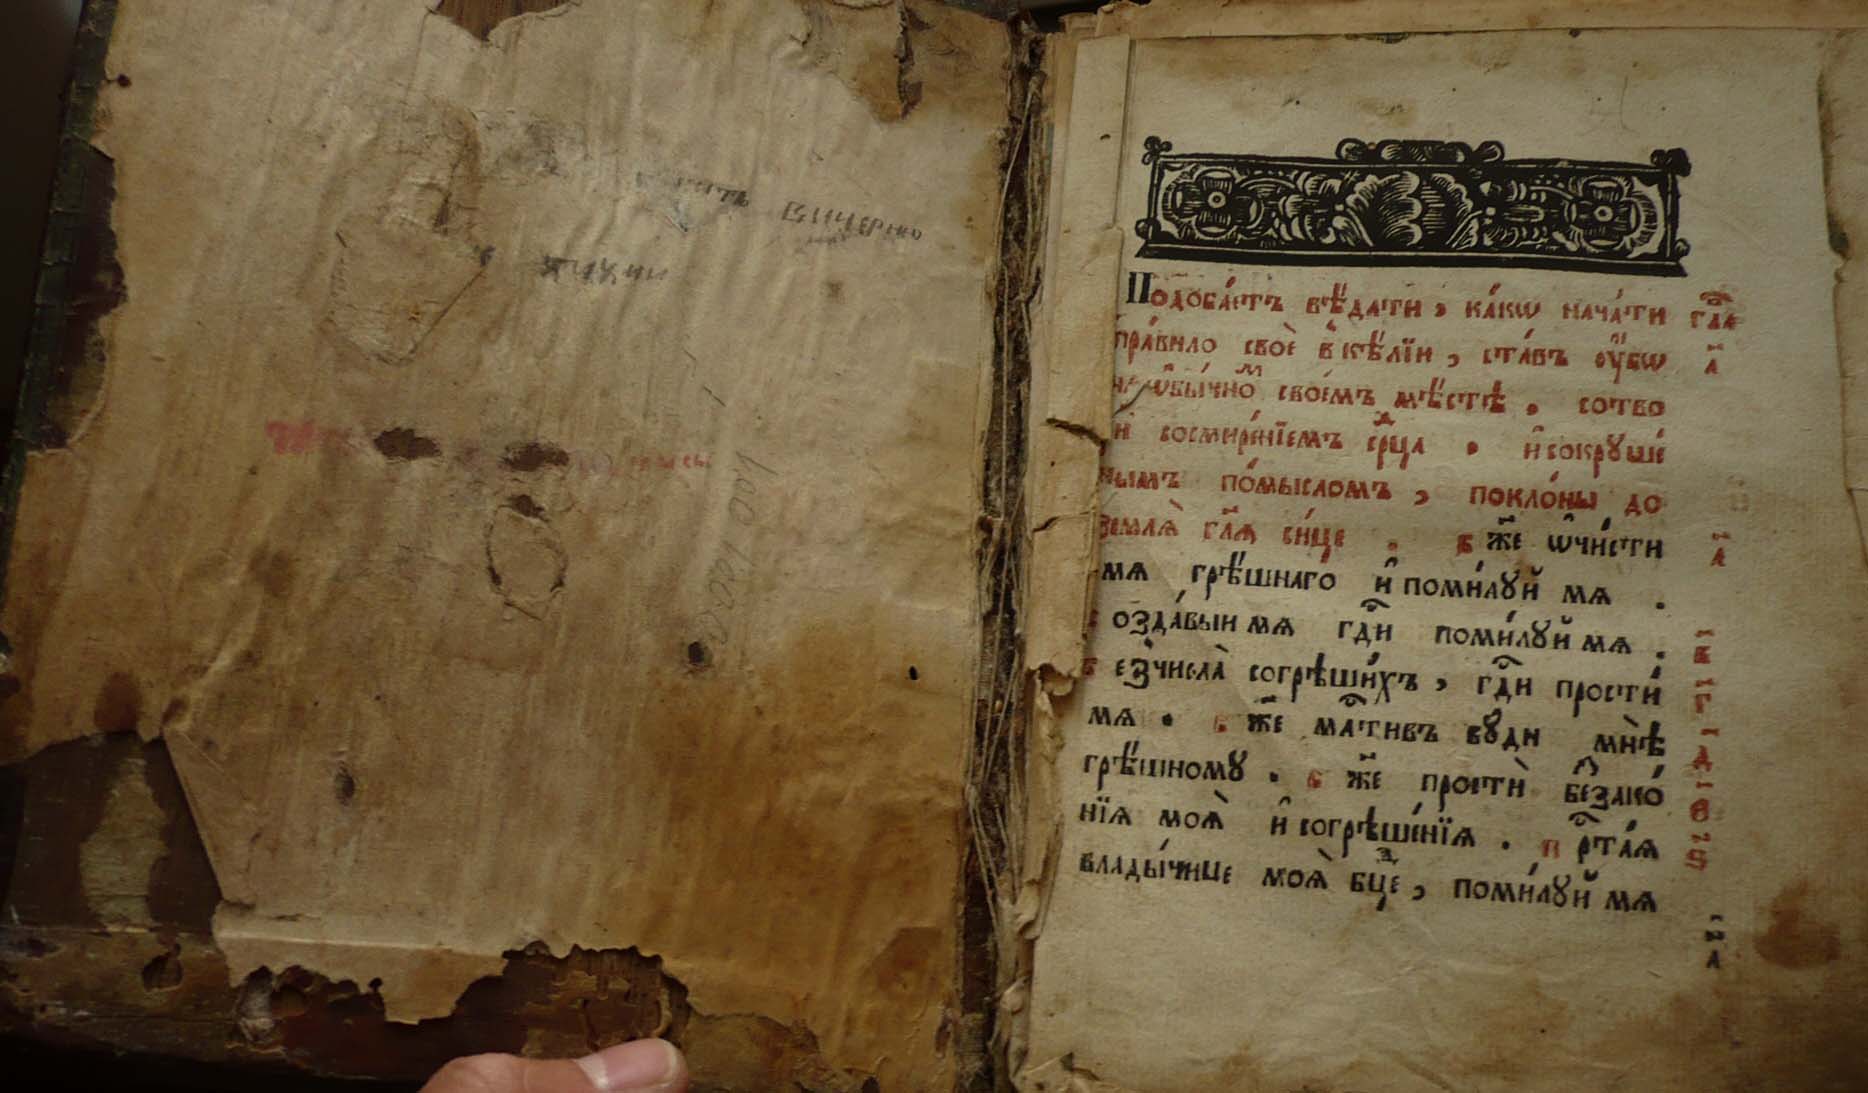 вичерню
Подоба́етъ вѣ́дати, ка́кѡ нача́ти гла҃
пра́вило своѐ в̾ кѣ́лїи, ста́въ ᲂу҆́бѡ а҃
ѡ҆бы́чноⷨ свое́мъ мѣ́стѣ. сотво
восмире́нїемъ се́рⷣца. и҆ сокруше́
нымъ по́мысломъ, покло́ны до
землѧ̀ гл҃ѧ си́це. б҃же ѡ҆чи́сти а҃
мѧ грѣ́шнаго и҆ поми́лꙋй мѧ.
созда́выи мѧ гдⷭ҇и поми́лꙋй мѧ. в҃
без̾числа̀ согрѣши́хъ, гдⷭ҇и прости́ г҃
мѧ. б҃же млⷭ҇тивъ бꙋди мнѣ̀ д҃
грѣ́шномꙋ. б҃же простѝ беⷥзако́ є҃
нїѧ моѧ̀ и҆ согрѣше́нїѧ. прⷭ҇та́ѧ ѕ҃
влады́чице моѧ̀ бцⷣе, поми́лꙋй мѧ